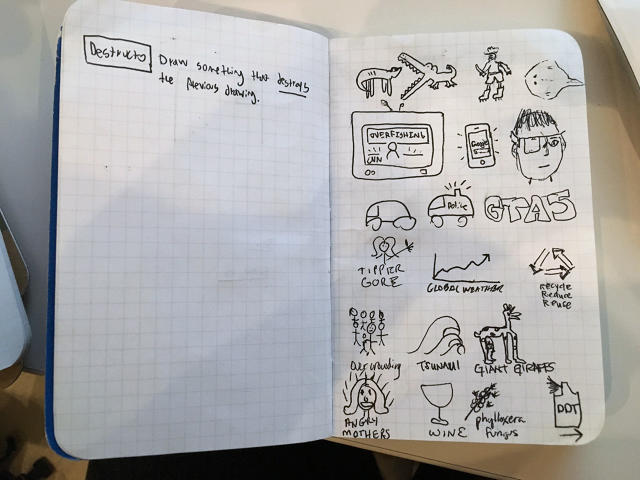 Destructo
Draw something that destroys
the previous drawing.
OVERFISHING
CNN
Google
Police
GTA5
TIPPER
GORE
GLOBAL WEATHER
Recycle
Reduce
Reuse
Overcrowding
TSUNAMI
GIANT GIRAFFS
ANGRY
MOTHERS
WINE
phylloxera
fungus
DDT